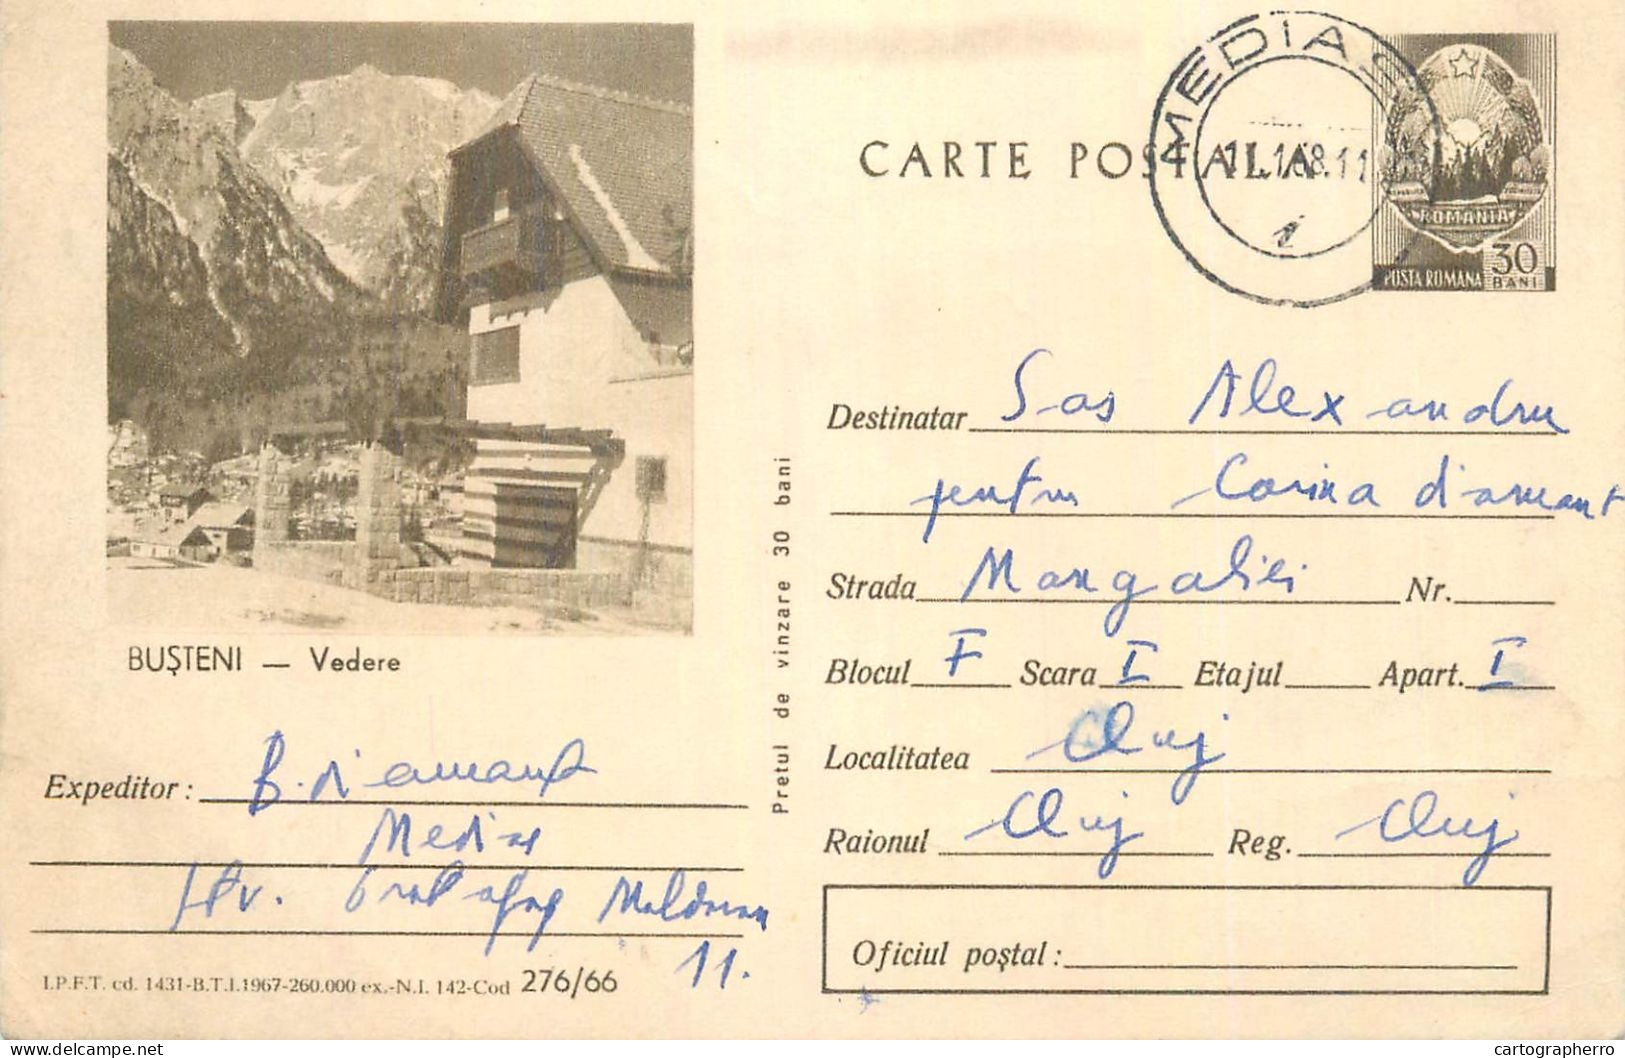 MEDIAȘ
11.1.68.11
CARTE POSTALA
ROMANIA
POSTA ROMANA 30 BANI
BUȘTENI — Vedere
Pretul de vinzare 30 bani
Destinatar Sas Alexandru
pentru Corina diamant
Strada Mangaliei Nr.
Blocul F Scara I Etajul Apart. I
Localitatea Cluj
Raionul Cluj Reg. Cluj
Oficiul poștal :
Expeditor : B. diamant
Mediaș
Moldovan
11.
I.P.F.T. cd. 1431-B.T.I.1967-260.000 ex.-N.I. 142-Cod 276/66
delcampe.net
cartographerro